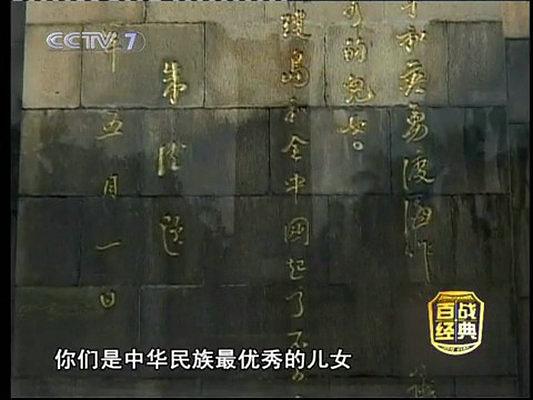 CCTV 7
和英勇渡海作
的兒女。
島和全中國起了不
朱德
年五月一日
百战
经典
你们是中华民族最优秀的儿女